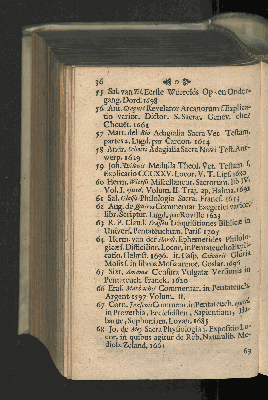 36
55 Sal. van Til Eerste Wereelds Op-en Onder-
gang. Dord. 1698
56 Ant. Revelator Arcanorum f. Explica-
tio varior. Dictor. S. Sacræ. Genev. chez
Chouët. 1661
57 Mart. del Rio Adagialia Sacra Vet. Testam.
partes 2. Lugd. per Cardon. 1614
58 Adagialia Sacra Novi Test. Ant-
werp. 1629
59 Joh. Medulla Theol. Vet. Testam. f.
Explicatio CCCXXV. Locor. V. T. Lips. 1680
60 Herm. Witsii Miscellaneor. Sacrorum, lib. IV.
Vol. I. quod, Volum. II. Traj. ap. Halma. 1692
61 Sal. Glassii Philologia Sacra. Francf. 1653
62 Ant. de Commentar. Exegetici varior.
libr. Scriptur. Lugd. per Roville 1624
63 R. P. Disquisitiones Biblicæ in
Univers. Pentateuchum. Paris. 1705
64 Herm. van der Hardt Ephemerides Philolo-
gicæ f. Difficilior. Locor. in Pentateucho Expli-
catio. Helmst. 1696. it. Casp. Gloria
Mosis f. in libros Mosis annot. Goslar. 1696
65 Sixt. Amama Censura Vulgatæ Versionis in
Pentateuch. Franek. 1620
66 Eral. Commentar. in Pentateuch.
Argent. 1597 Volum. II.
67 Corn. Jansenii Comment. in Pentateuch. quod,
in Proverbia, Ecclesiasten, Sapientiam, Ha-
bacuc, Sophoniam. Lovan. 1685
68 Jo. de Mey Sacra Physiologia f. Expositio Lo-
cor. in quibus agitur de Reb. Naturalib. Me-
diob. Zeland. 1661
69